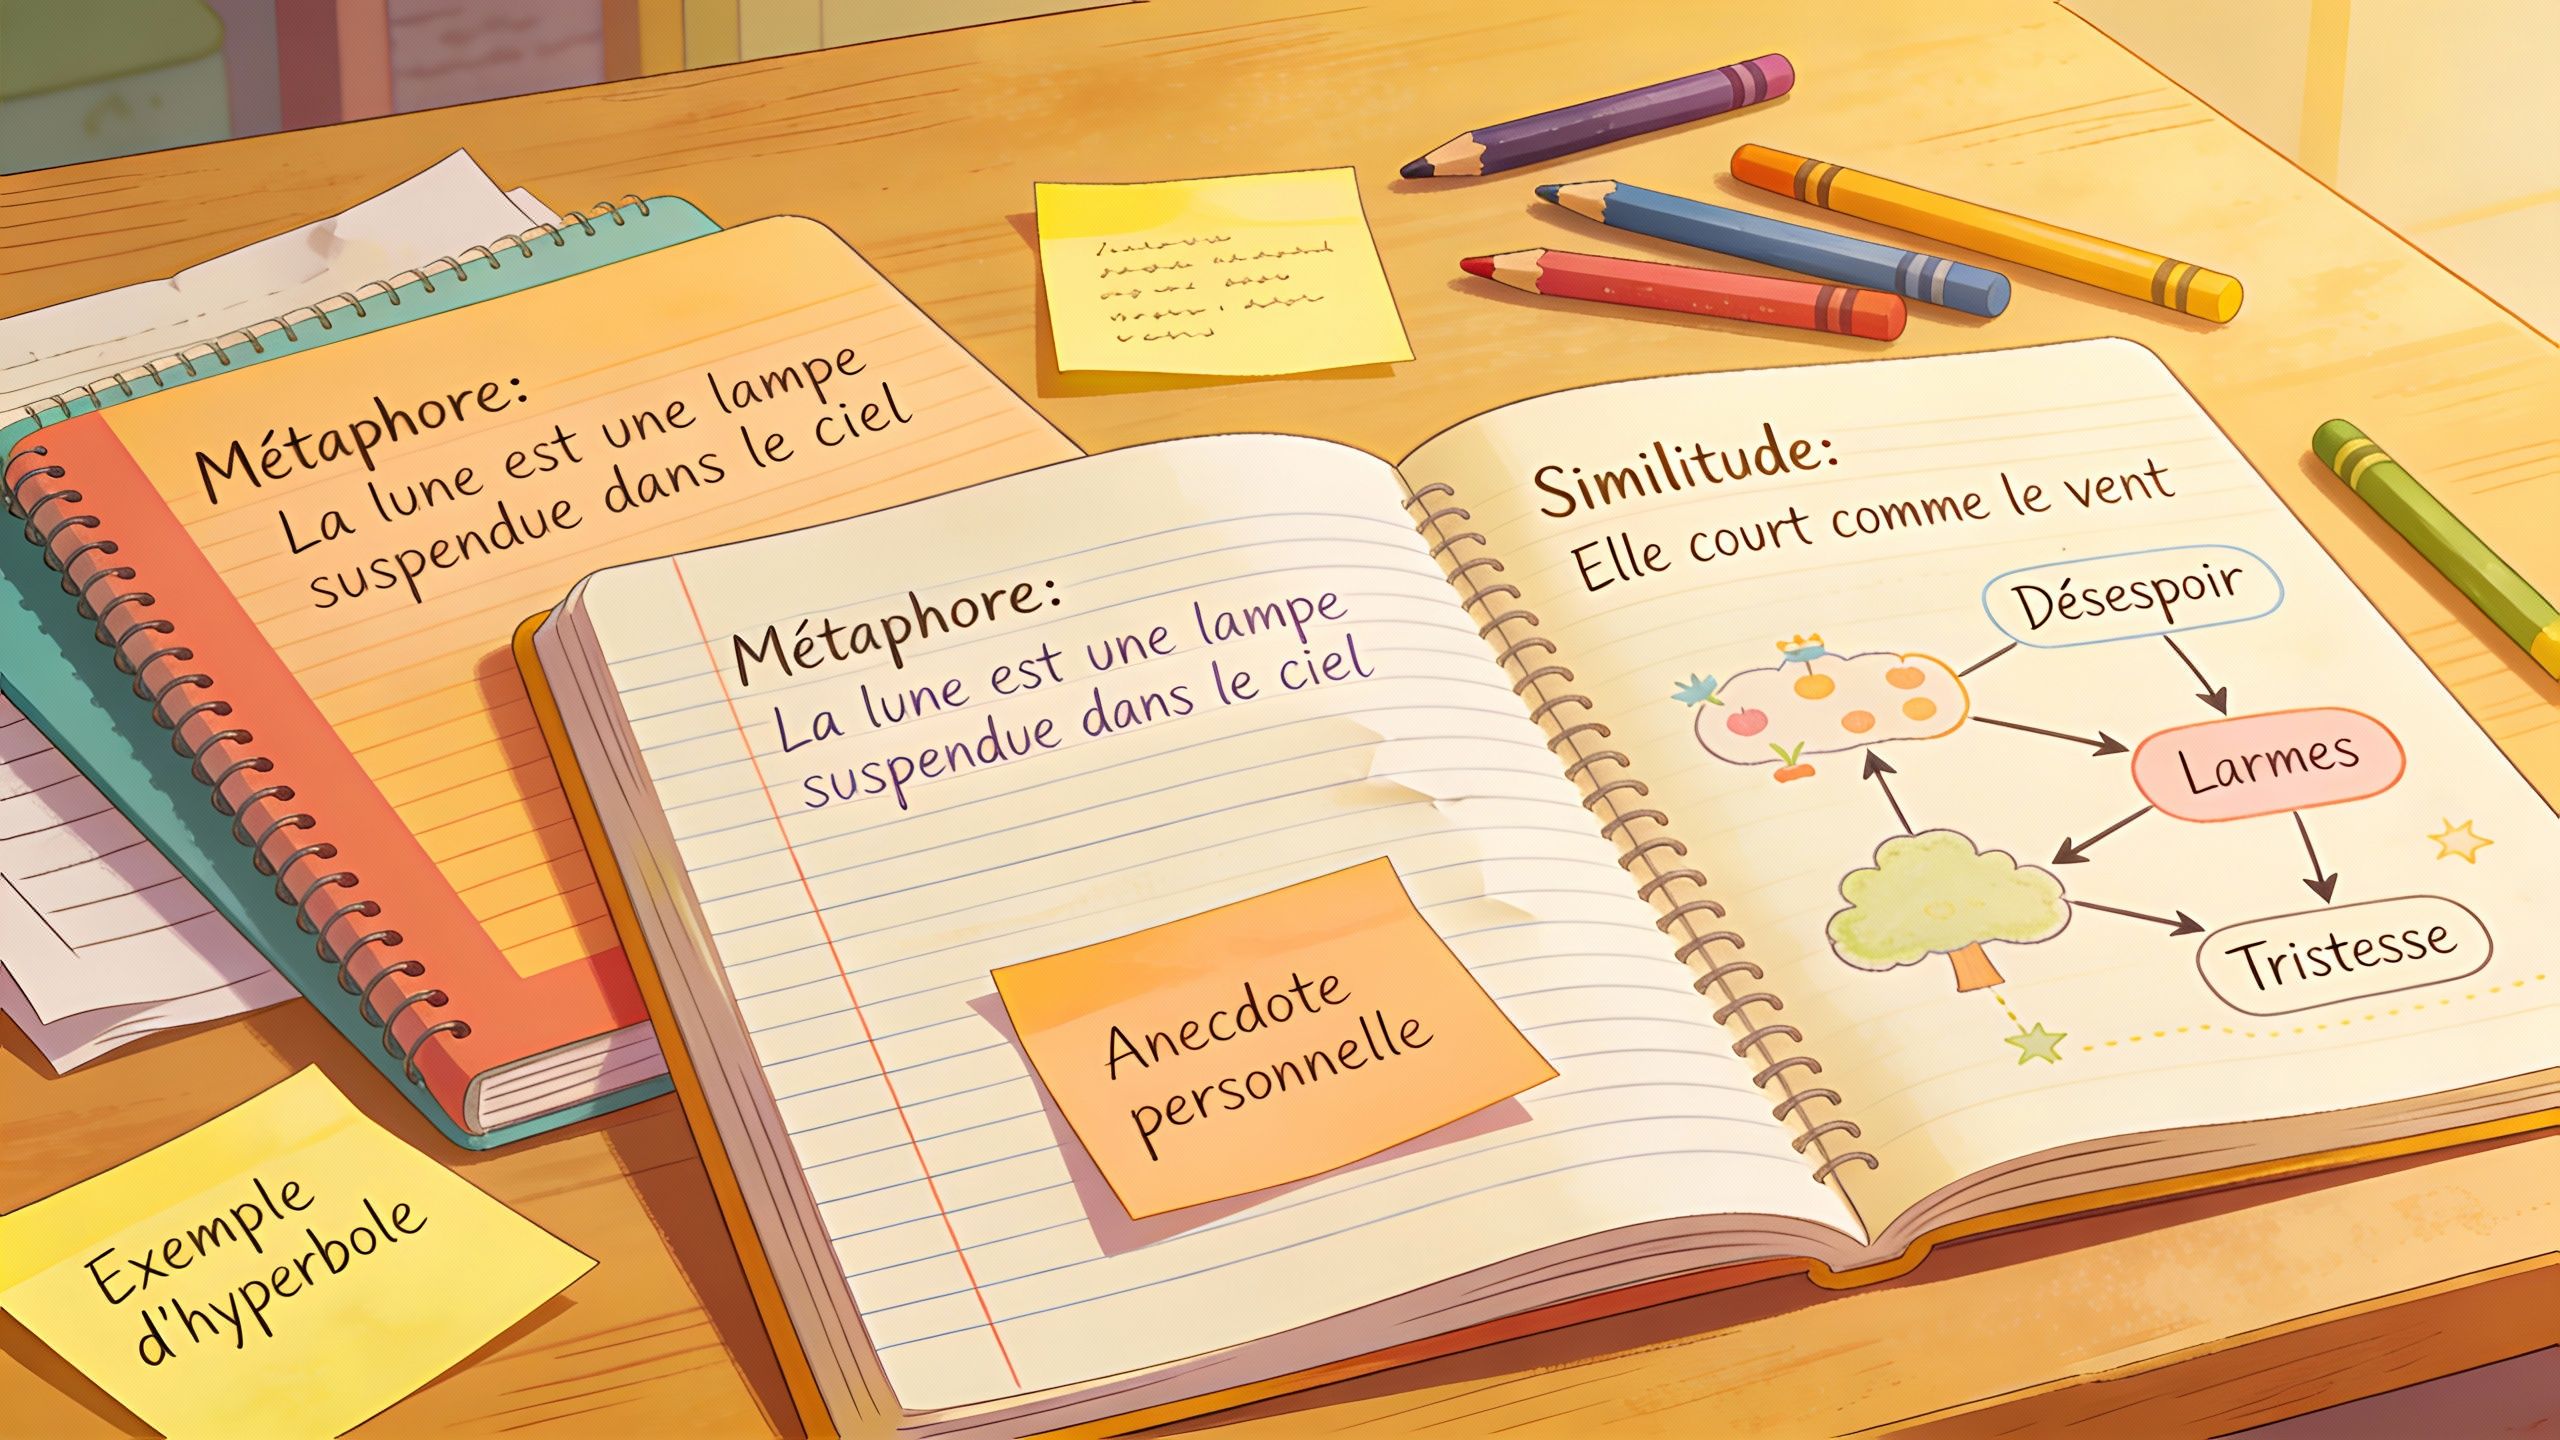 Métaphore:
La lune est une lampe
suspendue dans le ciel
Métaphore:
La lune est une lampe
suspendue dans le ciel
Anecdote
personnelle
Similitude:
Elle court comme le vent
Désespoir
Larmes
Tristesse
Exemple
d'hyperbole